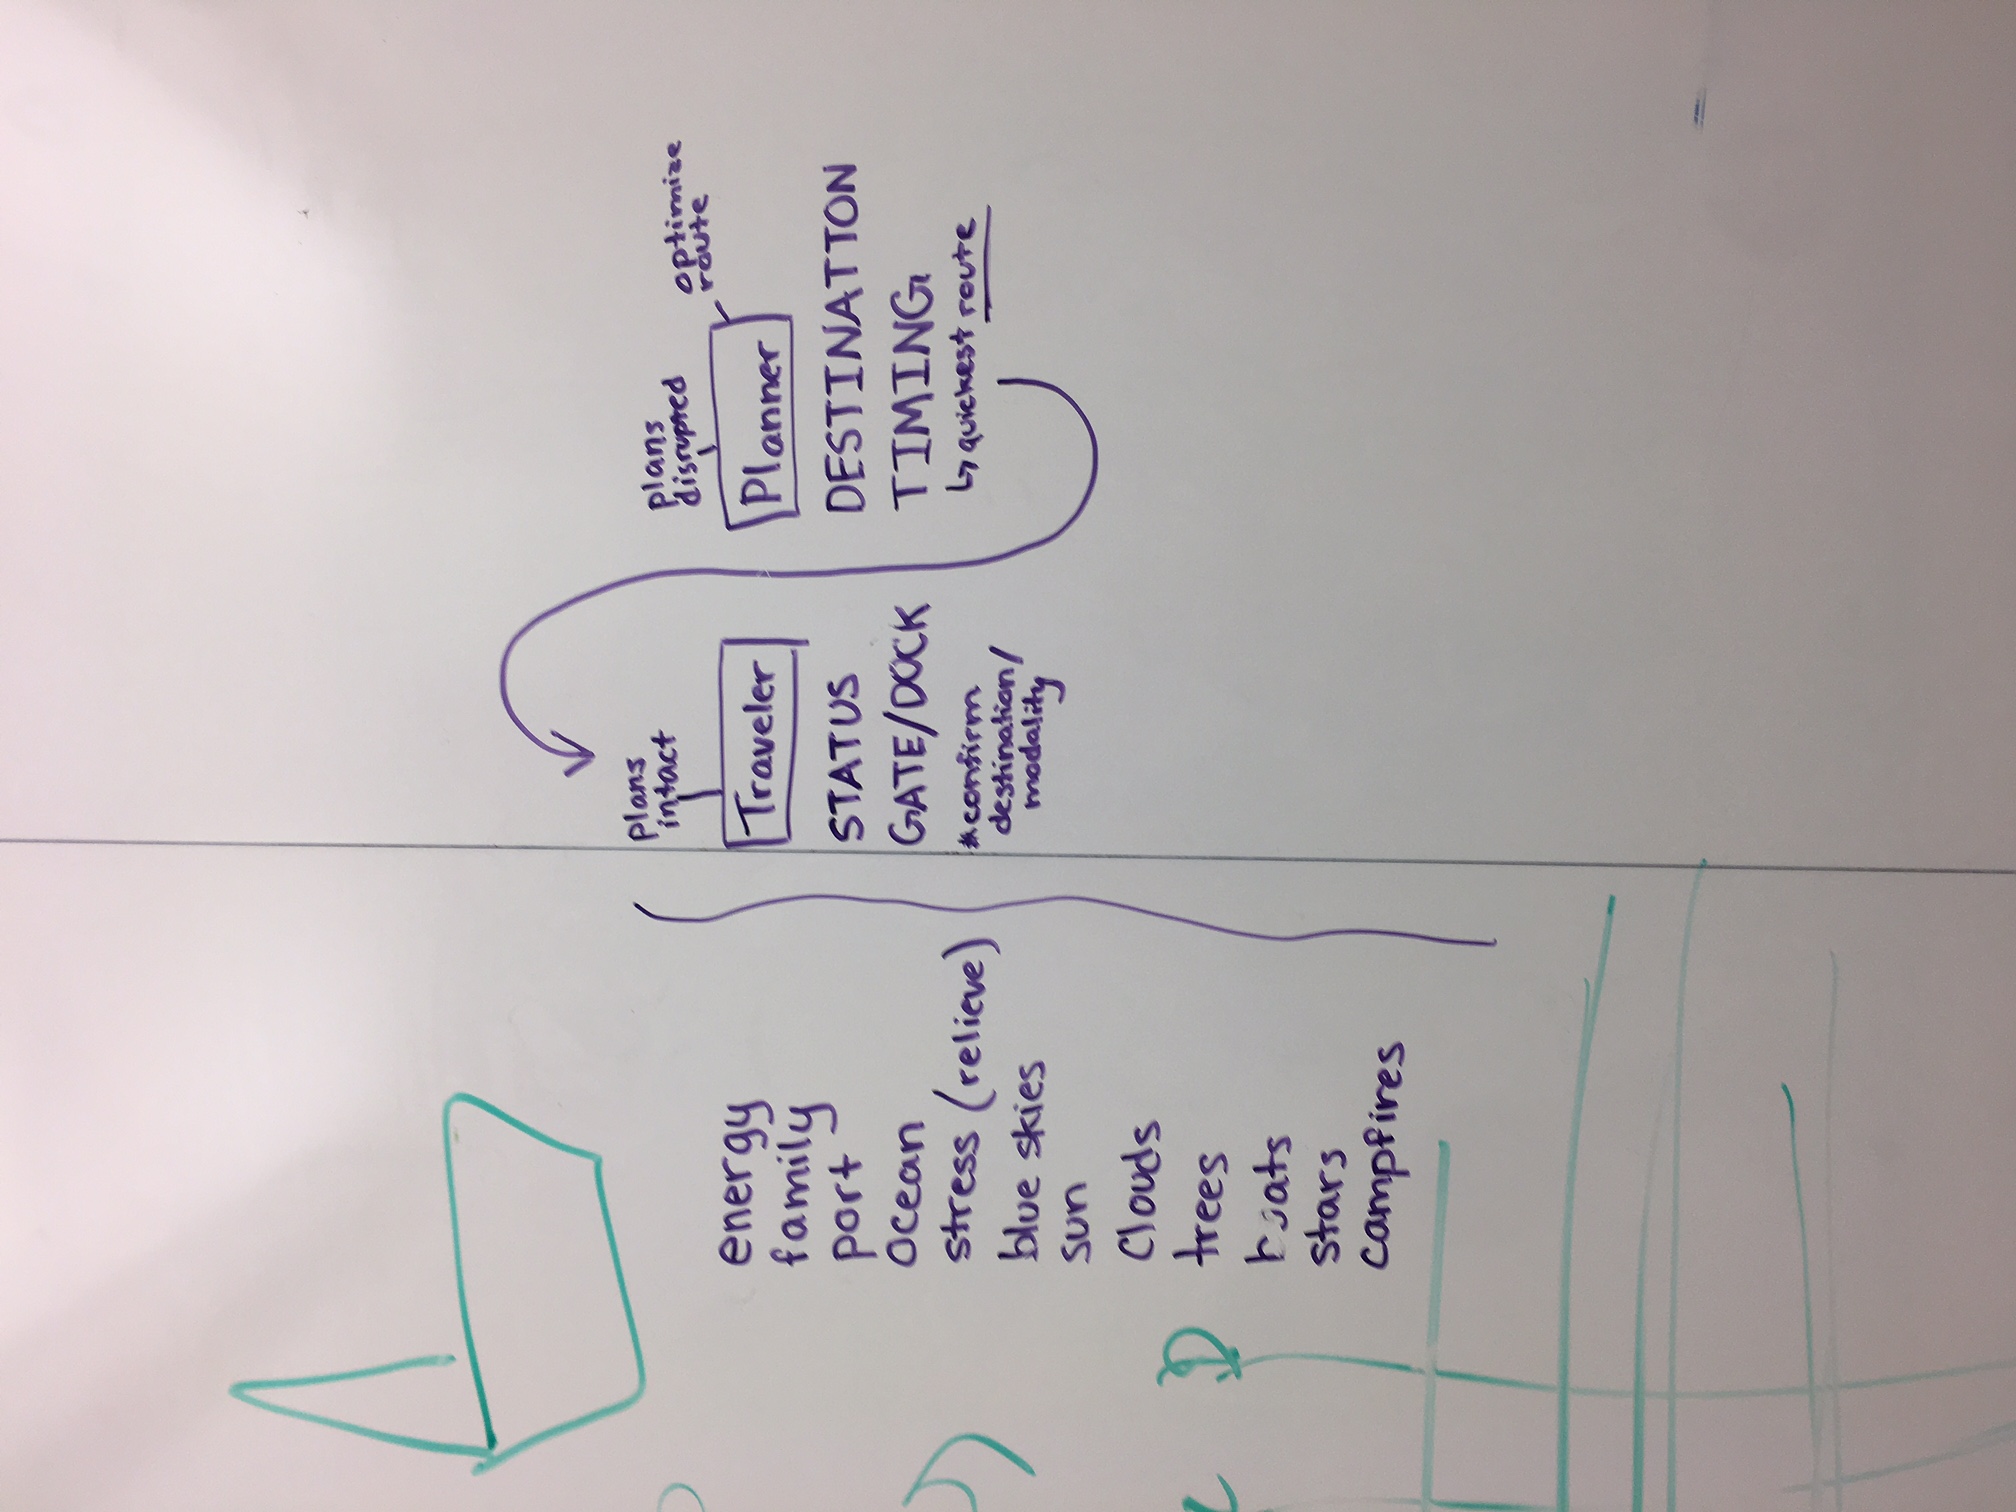 energy
family
port
ocean
stress (relieve)
blue skies
sun
Clouds
trees
boats
stars
campfires
plans
intact
Traveler
STATUS
GATE/DOCK
*confirm
destination/
modality
plans
disrupted
optimize
route
Planner
DESTINATION
TIMING
↳ quickest route
D